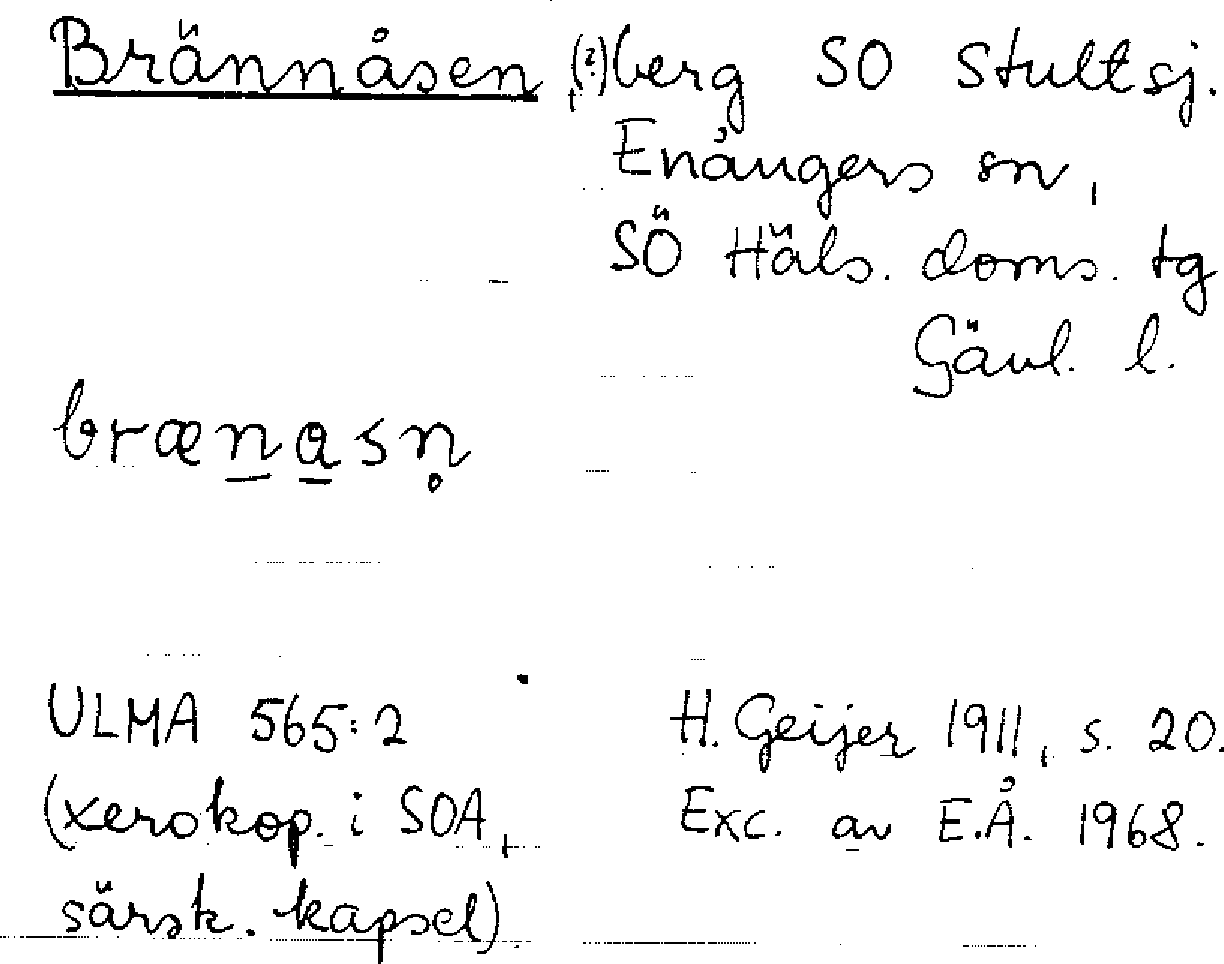 Brännåsen (?) berg SO Stultsj.
Enångers sn,
SÖ Häls. doms. tg
Gävl. l.
brænasn̥
ULMA 565:2
(xerokop. i SOA,
särsk. kapsel).
H. Geijer 1911, s. 20.
Exc. av E.Å. 1968.